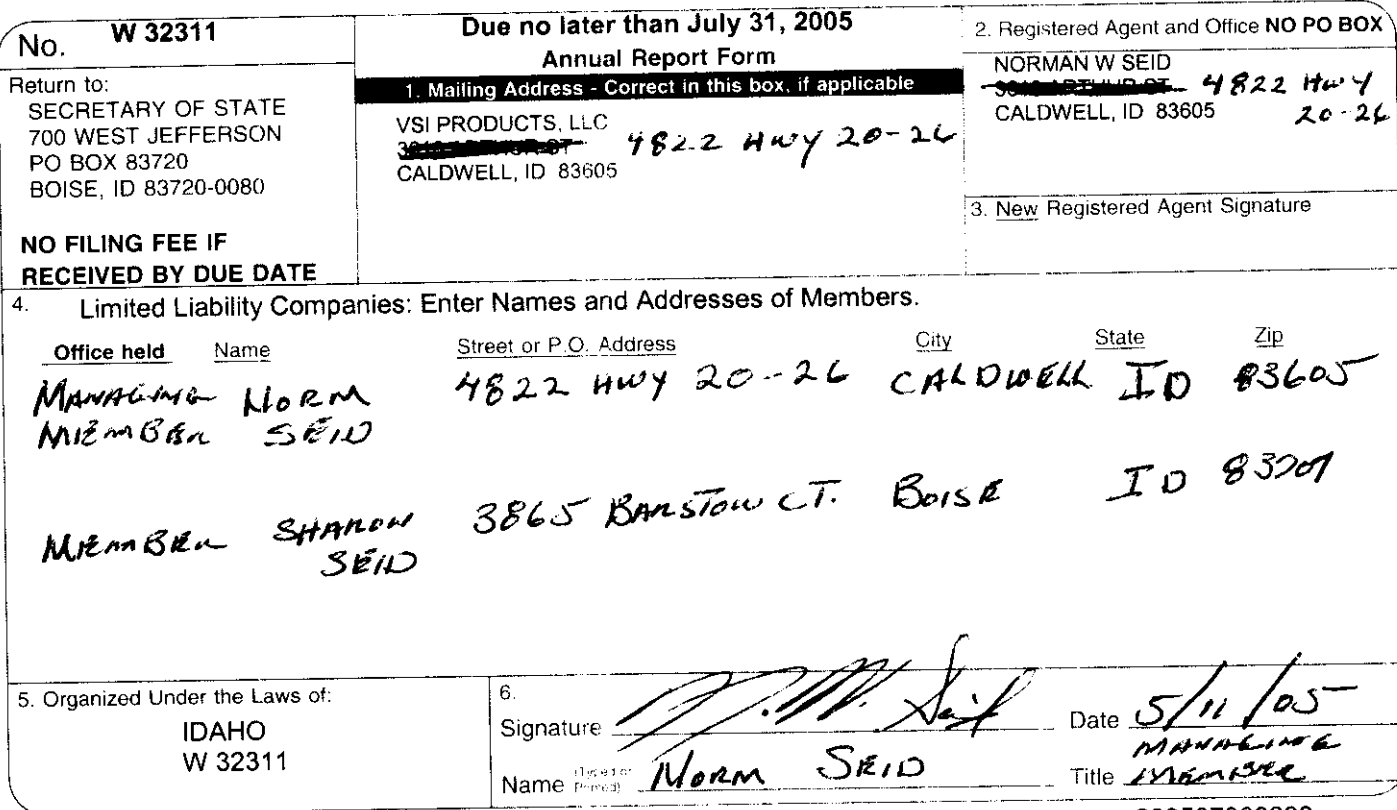 No. W 32311
Return to:
SECRETARY OF STATE
700 WEST JEFFERSON
PO BOX 83720
BOISE, ID 83720-0080
NO FILING FEE IF
RECEIVED BY DUE DATE
Due no later than July 31, 2005
Annual Report Form
1. Mailing Address - Correct in this box, if applicable
VSI PRODUCTS, LLC
4822 HWY 20-26
CALDWELL, ID 83605
2. Registered Agent and Office NO PO BOX
NORMAN W SEID
4822 HWY
CALDWELL, ID 83605 20-26
3. New Registered Agent Signature
4. Limited Liability Companies: Enter Names and Addresses of Members.
Office held Name Street or P.O. Address City State Zip
MANAGING NORM 4822 HWY 20-26 CALDWELL ID 83605
MEMBER SEID
MEMBER SHARON 3865 BARSTOW CT. BOISE ID
SEID
5. Organized Under the Laws of:
IDAHO
W 32311
6.
Signature Date 5/11/05
Name (Typed or Printed) NORM SEID Title MANAGING
MEMBER